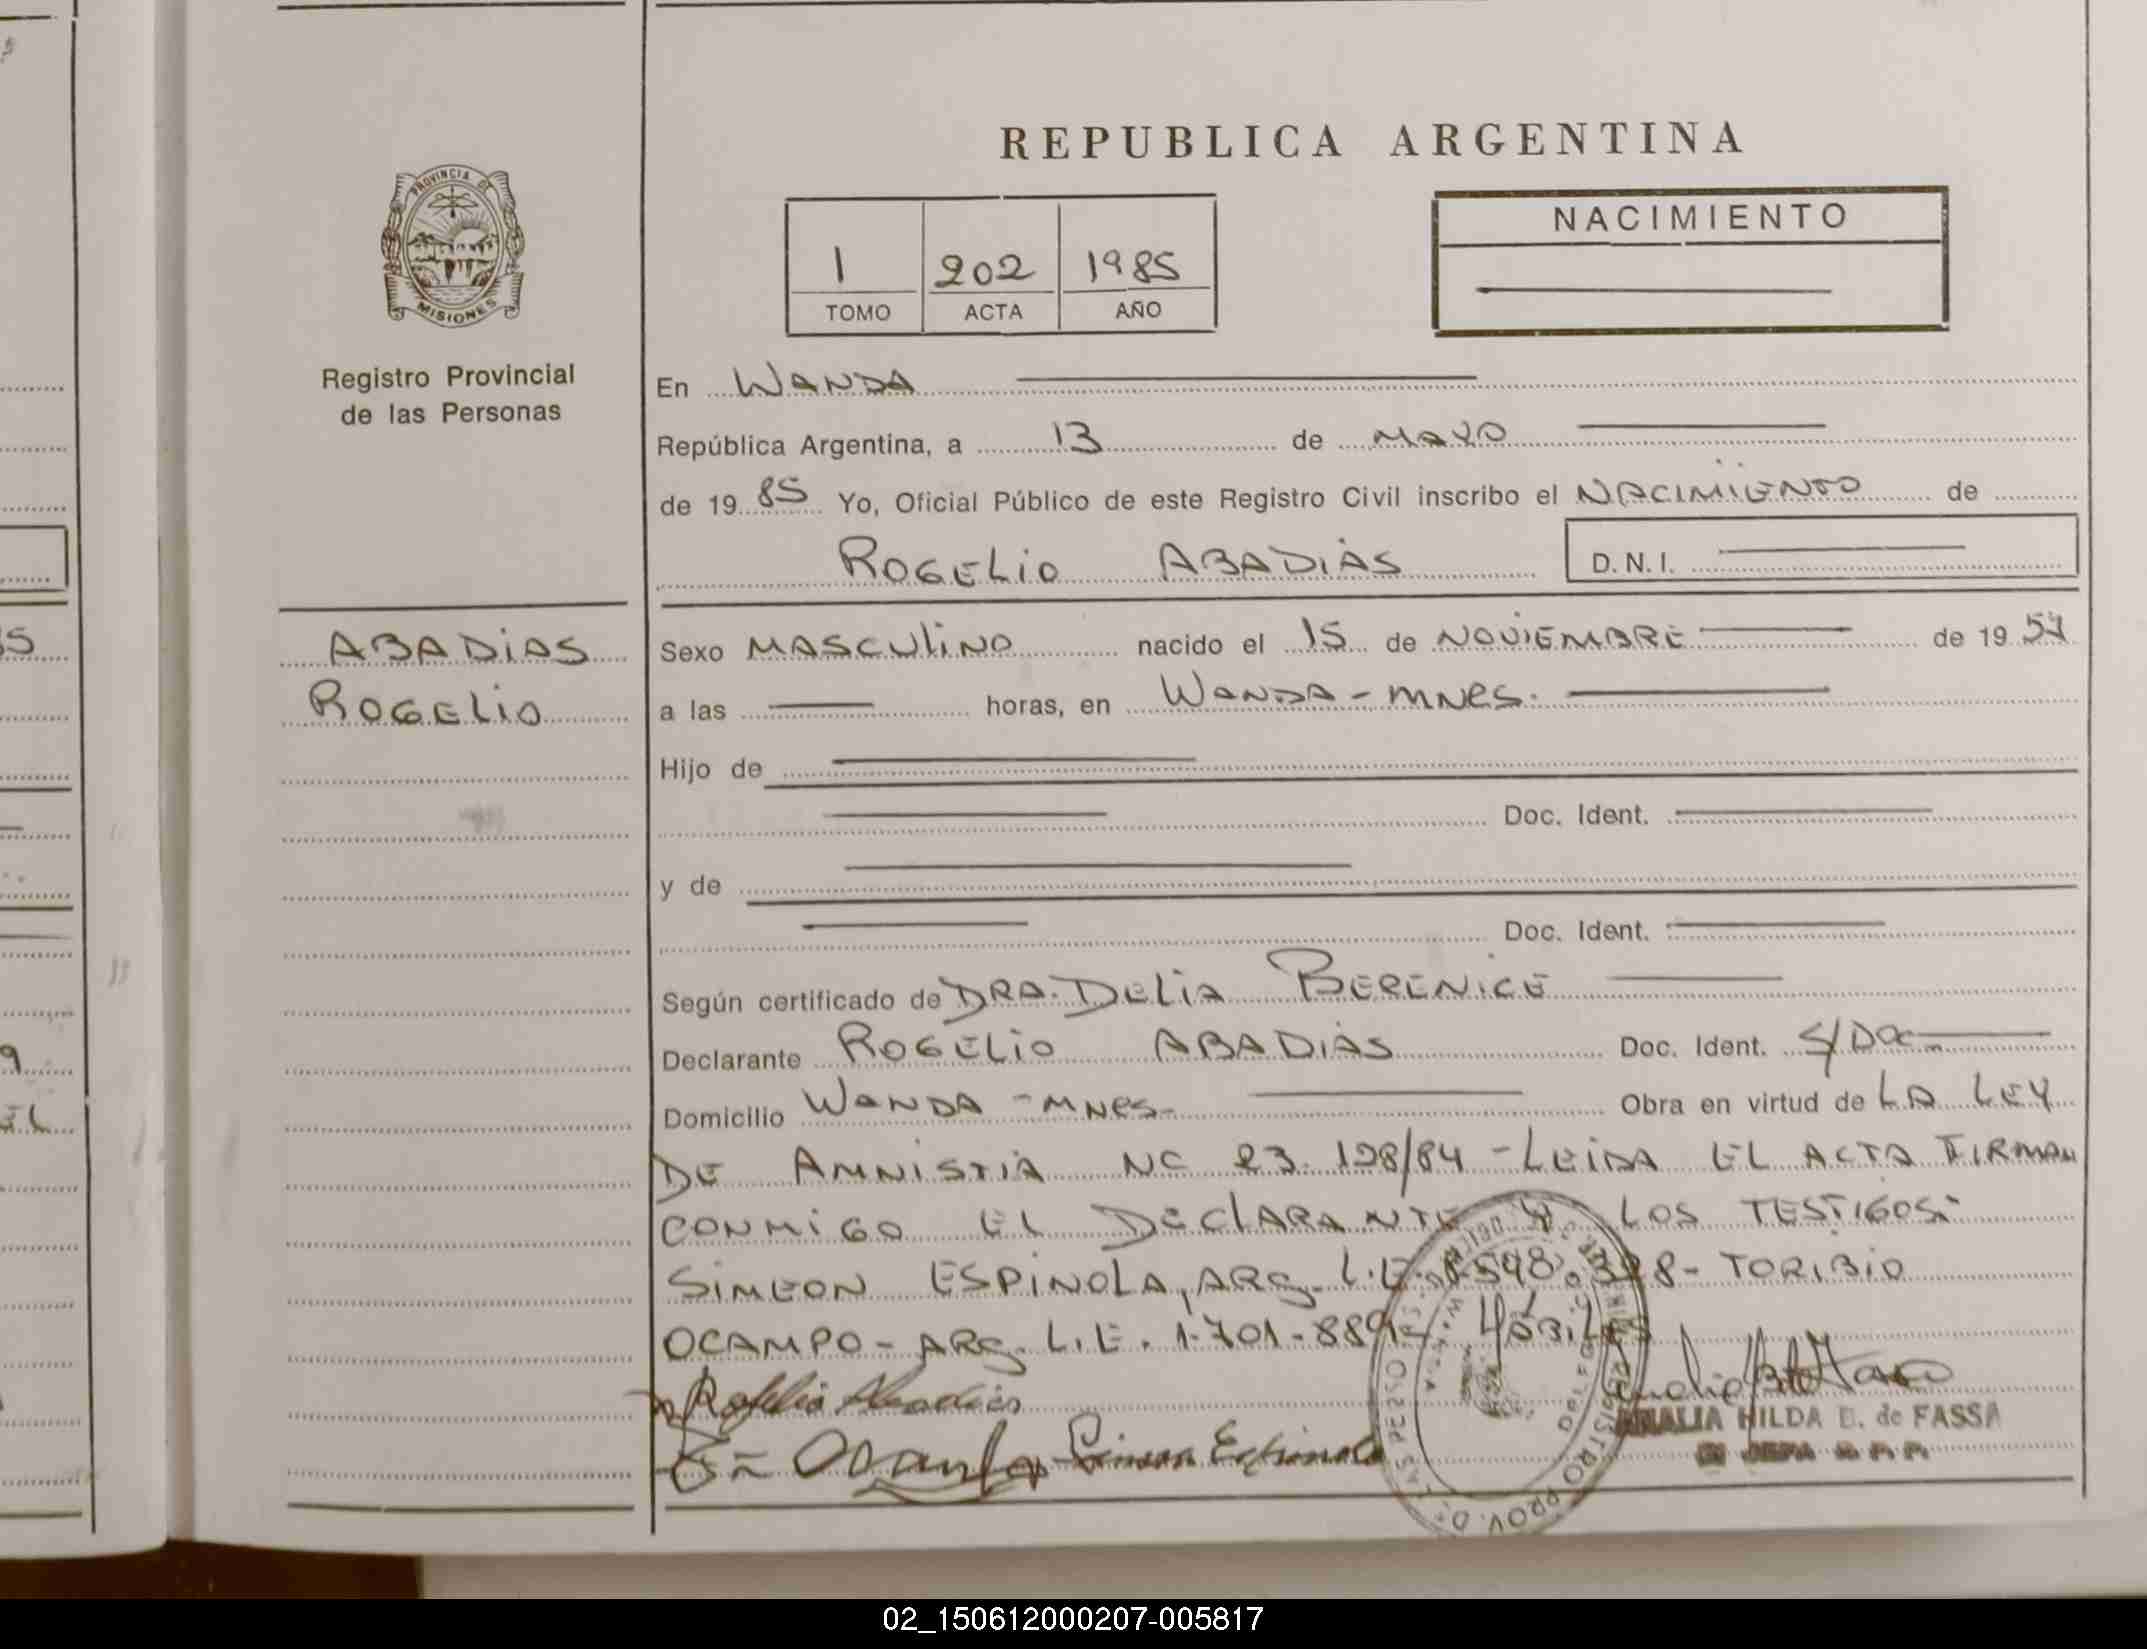 REPUBLICA ARGENTINA
PROVINCIA DE
MISIONES
Registro Provincial
de las Personas
1 202 1985
TOMO ACTA AÑO
NACIMIENTO
En WANDA
República Argentina, a 13 de MAYO
de 19 85 Yo, Oficial Público de este Registro Civil inscribo el NACIMIENTO de
ROGELIO ABADIAS D.N.I.
ABADIAS
ROGELIO
Sexo MASCULINO nacido el 15 de NOVIEMBRE de 19 57
a las horas, en WANDA - MNES.
Hijo de
Doc. Ident.
y de
Doc. Ident.
Según certificado de DRA. DELIA BERENICE
Declarante ROGELIO ABADIAS Doc. Ident. S/DOC
Domicilio WANDA - MNES- Obra en virtud de LA LEY
DE AMNISTIA NC 23.128/84 - LEIDA EL ACTA FIRMAN
CONMIGO EL DECLARANTE Y LOS TESTIGOS:
SIMEON ESPINOLA, ARG. L.E. - TORIBIO
OCAMPO - ARG. L.E. 1.701.889 - HÁBILES
Rogelio Abadias
Ocampo Simeon Espinola
ANALIA HILDA B. de FASSA
02_150612000207-005817